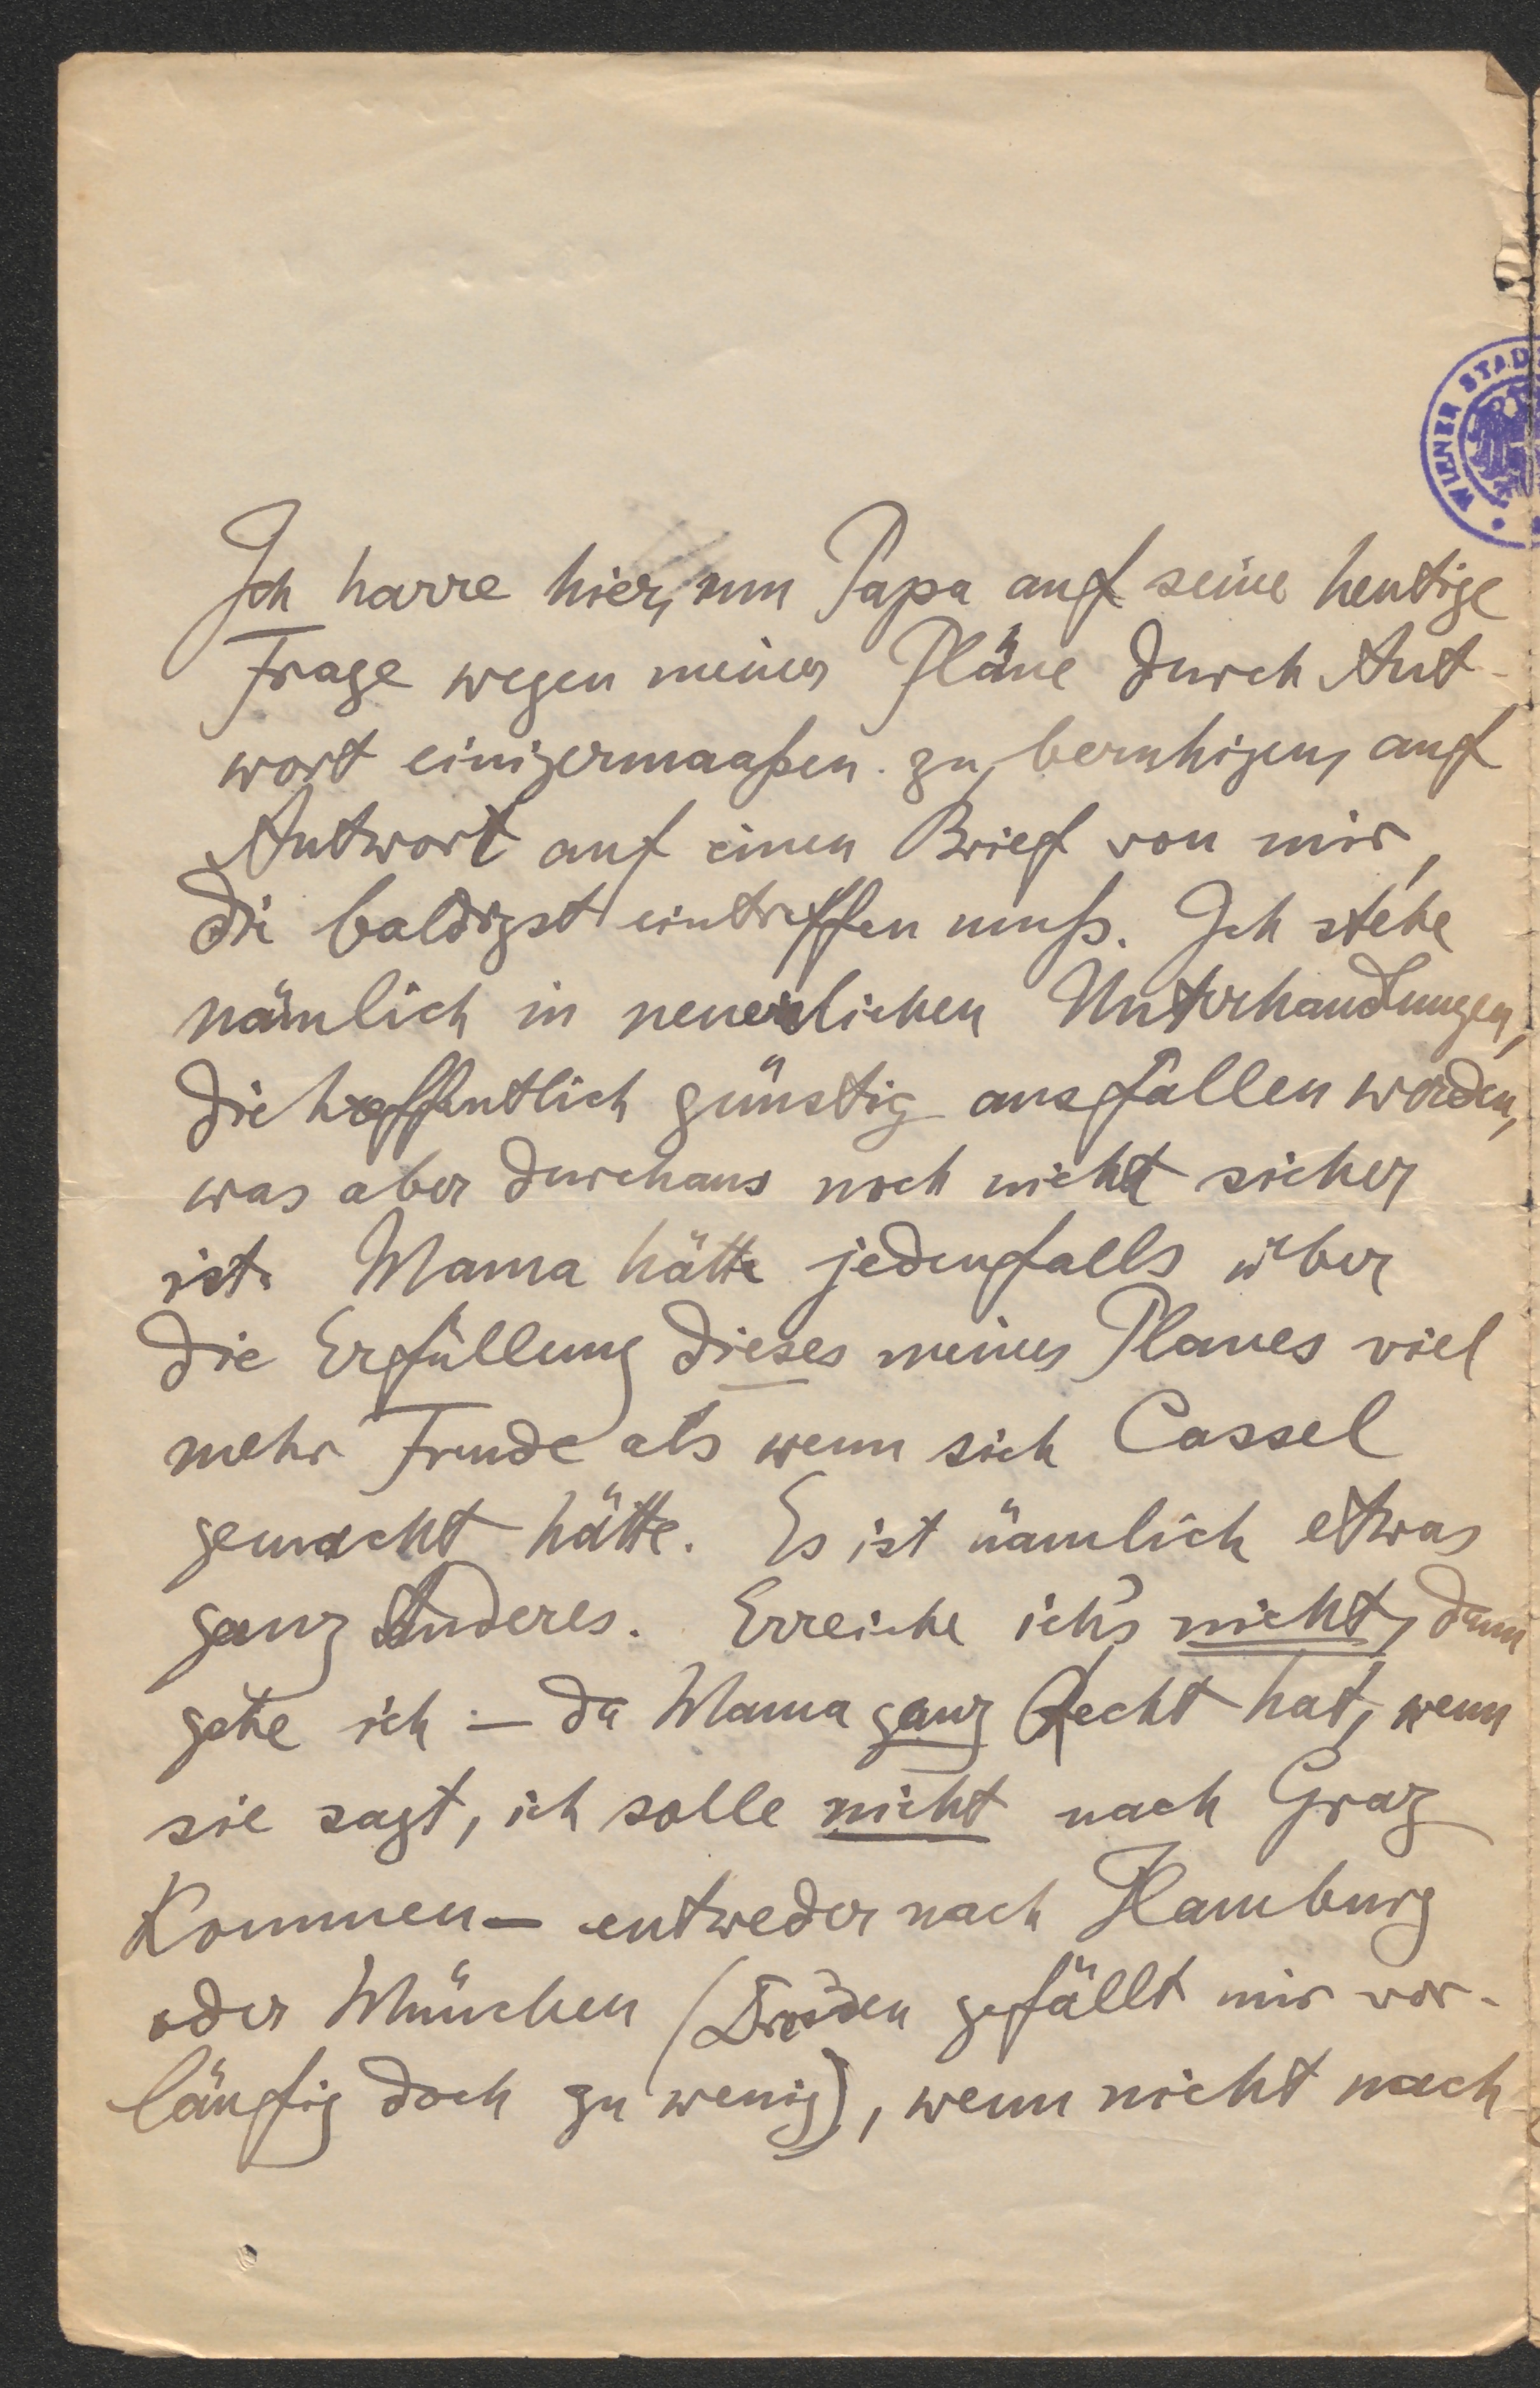 WIENER STAD
Ich harre hier, um Papa auf seine heutige
Frage wegen meiner Pläne durch Ant-
wort einigermaaßen zu beruhigen, auf
Antwort auf einen Brief von mir,
die baldigst eintreffen muß. Ich stehe
nämlich in neuerlichen Unterhandlungen,
die hoffentlich günstig ausfallen werden,
was aber durchaus noch nicht sicher
ist. Mama hätte jedenfalls über
die Erfüllung dieses meines Planes viel
mehr Freude als wenn sich Cassel
gemacht hätte. Es ist nämlich etwas
ganz Anderes. Erreiche ich's nicht, dann
gehe ich – da Mama ganz Recht hat, wenn
sie sagt, ich solle nicht nach Graz
kommen – entweder nach Hamburg
oder München (Dresden gefällt mir vor-
läufig doch zu wenig), wenn nicht nach